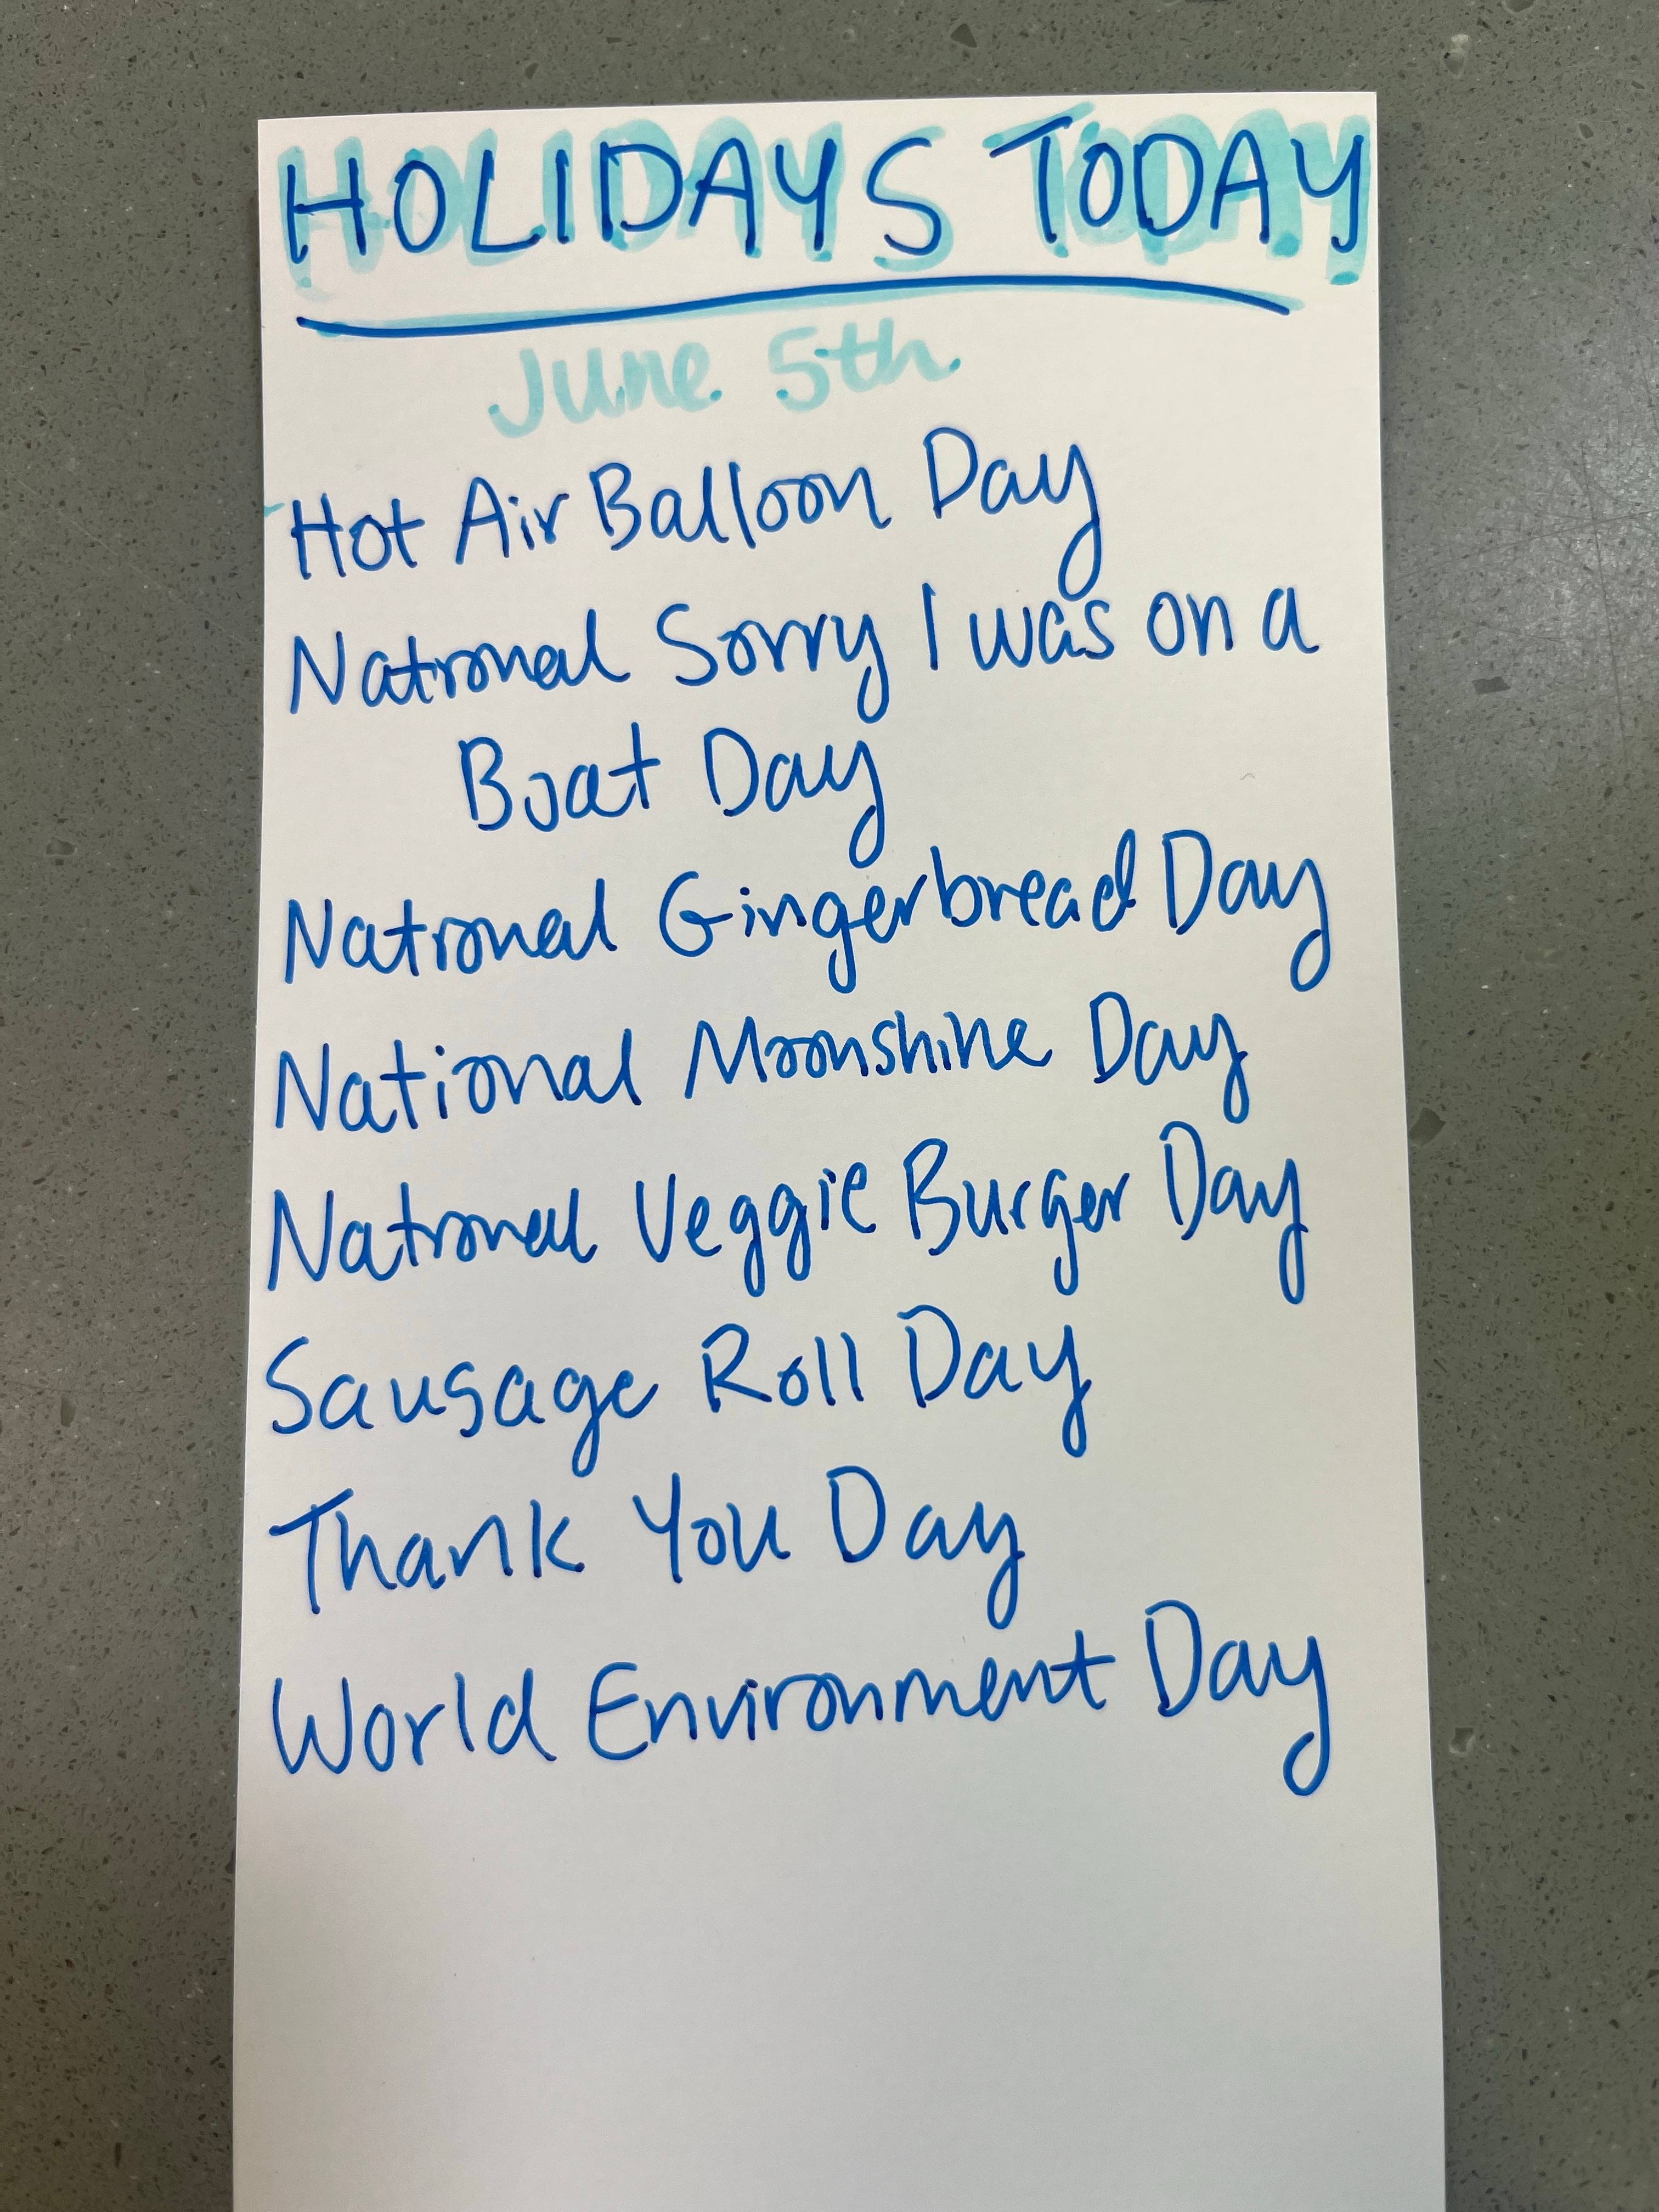 HOLIDAYS TODAY
June 5th
Hot Air Balloon Day
National Sorry I was on a
Boat Day
National Gingerbread Day
National Moonshine Day
National Veggie Burger Day
Sausage Roll Day
Thank You Day
World Environment Day